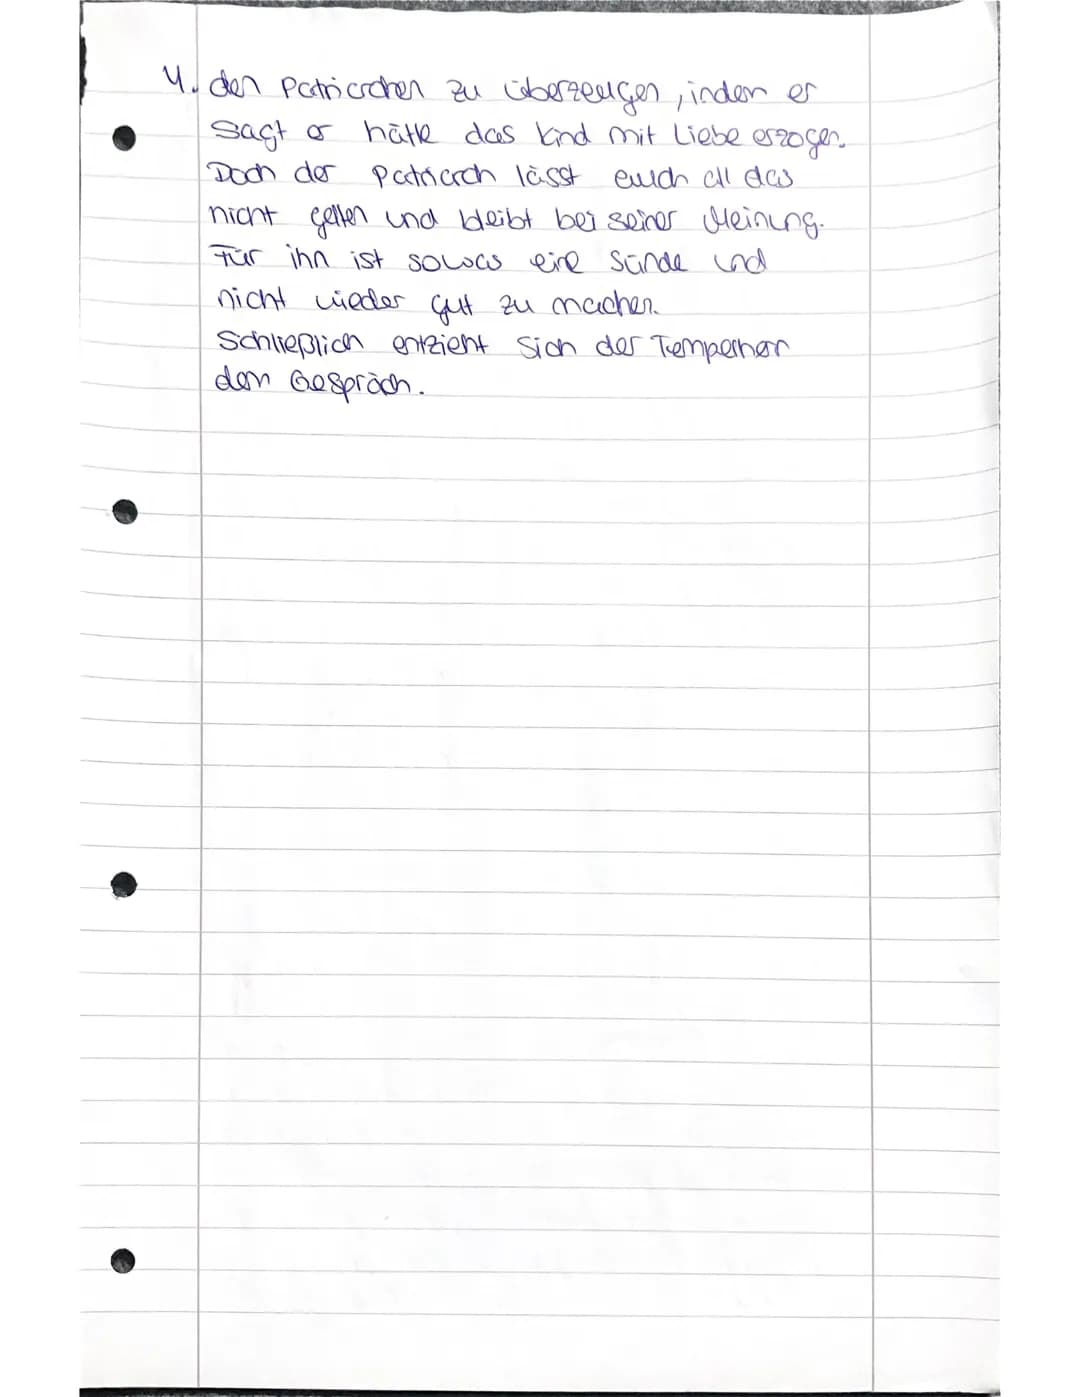 4. den Patriarchen zu überzeugen, indem er
sagt er hätte das Kind mit Liebe erzogen.
Doch der Patriarch lässt euch all das
nicht gelten und bleibt bei seiner Meinung.
Für ihn ist sowas eine Sünde und
nicht wieder gut zu machen.
Schließlich entzieht sich der Tempelherr
dem Gespräch.